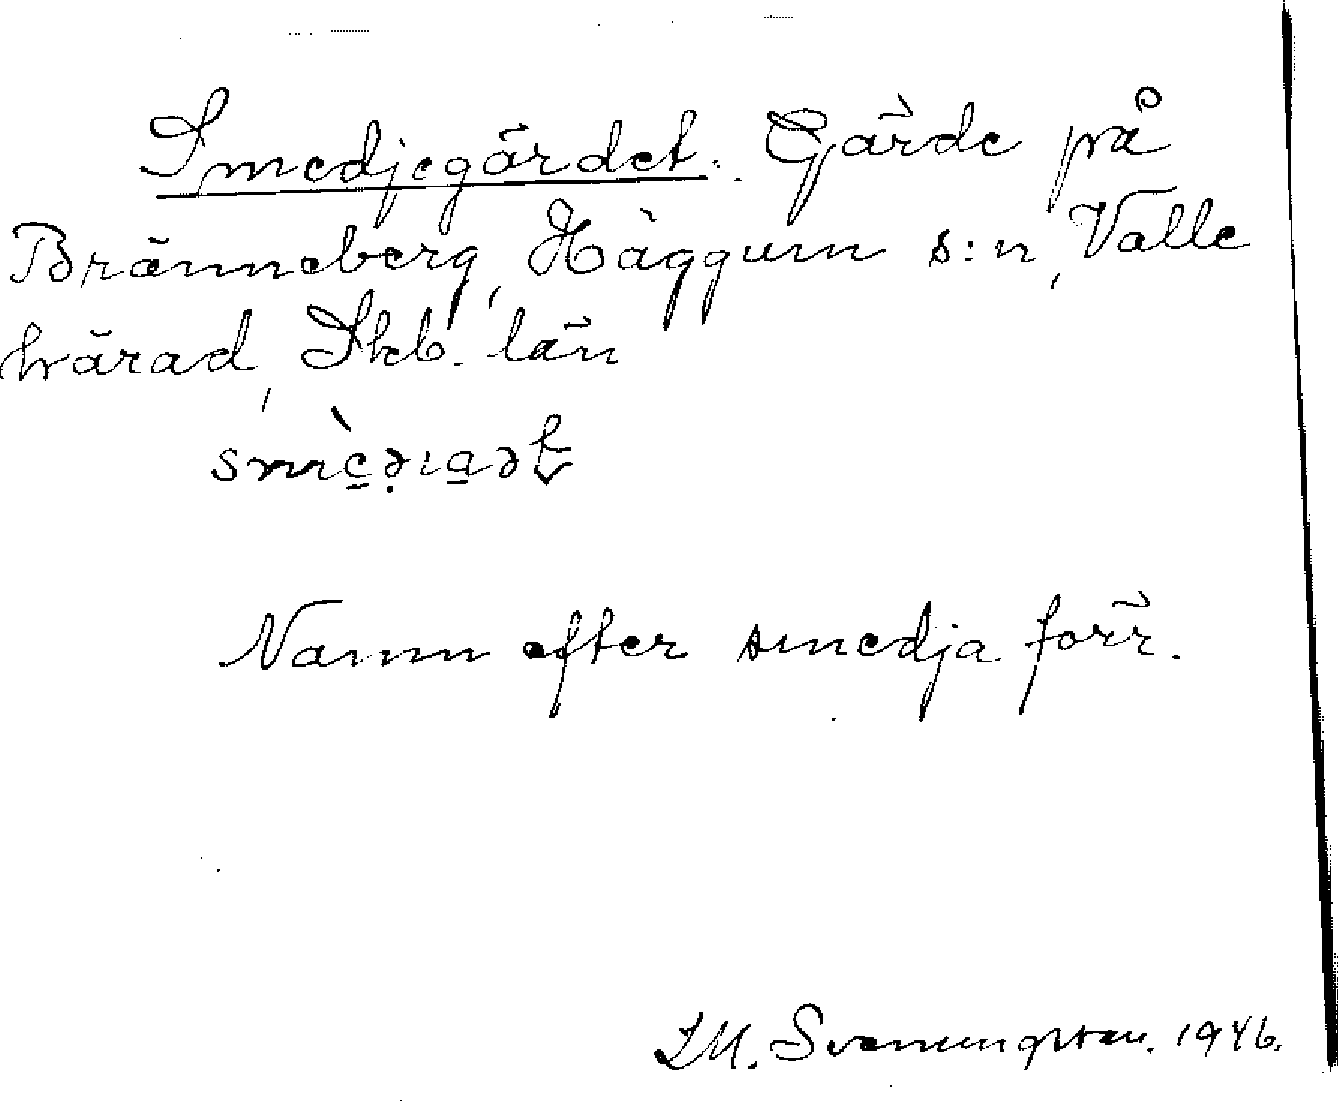 Smedjegärdet. Gärde på
Bränneberg, Häggum s:n, Valle
härad, Skb. län
Namn efter smedja förr.
Svenungsson. 1946.